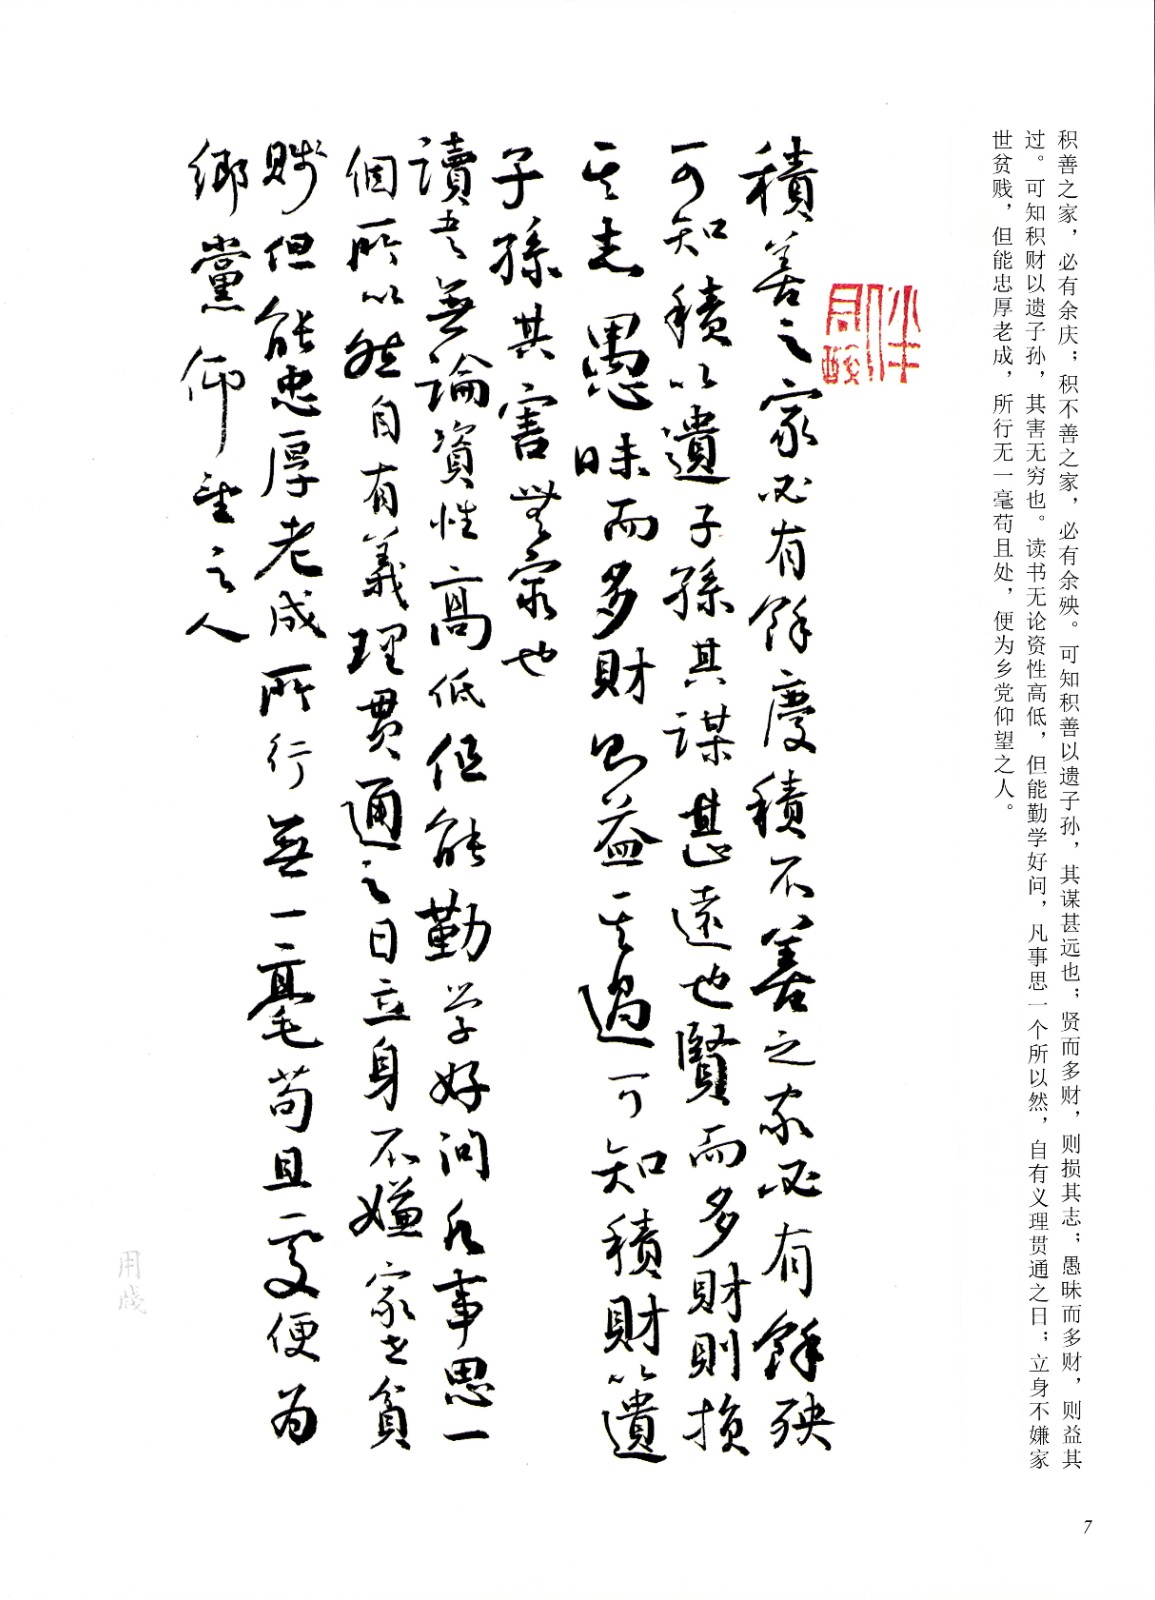 积善之家，必有余庆；积不善之家，必有余殃。可知积善以遗子孙，其谋甚远也；贤而多财，则损其志；愚昧而多财，则益其
过。可知积财以遗子孙，其害无穷也。读书无论资性高低，但能勤学好问，凡事思一个所以然，自有义理贯通之日；立身不嫌家
世贫贱，但能忠厚老成，所行无一毫苟且处，便为乡党仰望之人。
積善之家必有餘慶積不善之家必有餘殃
可知積以遺子孫其謀甚遠也賢而多財則损
其志愚昧而多財則益其過可知積財以遺
子孫其害無窮也
讀书無論資性高低但能勤学好问凡事思一
個所以然自有義理貫通之日立身不嫌家世貧
賤但能忠厚老成所行無一毫苟且處便为
鄉黨仰望之人
用牋
7